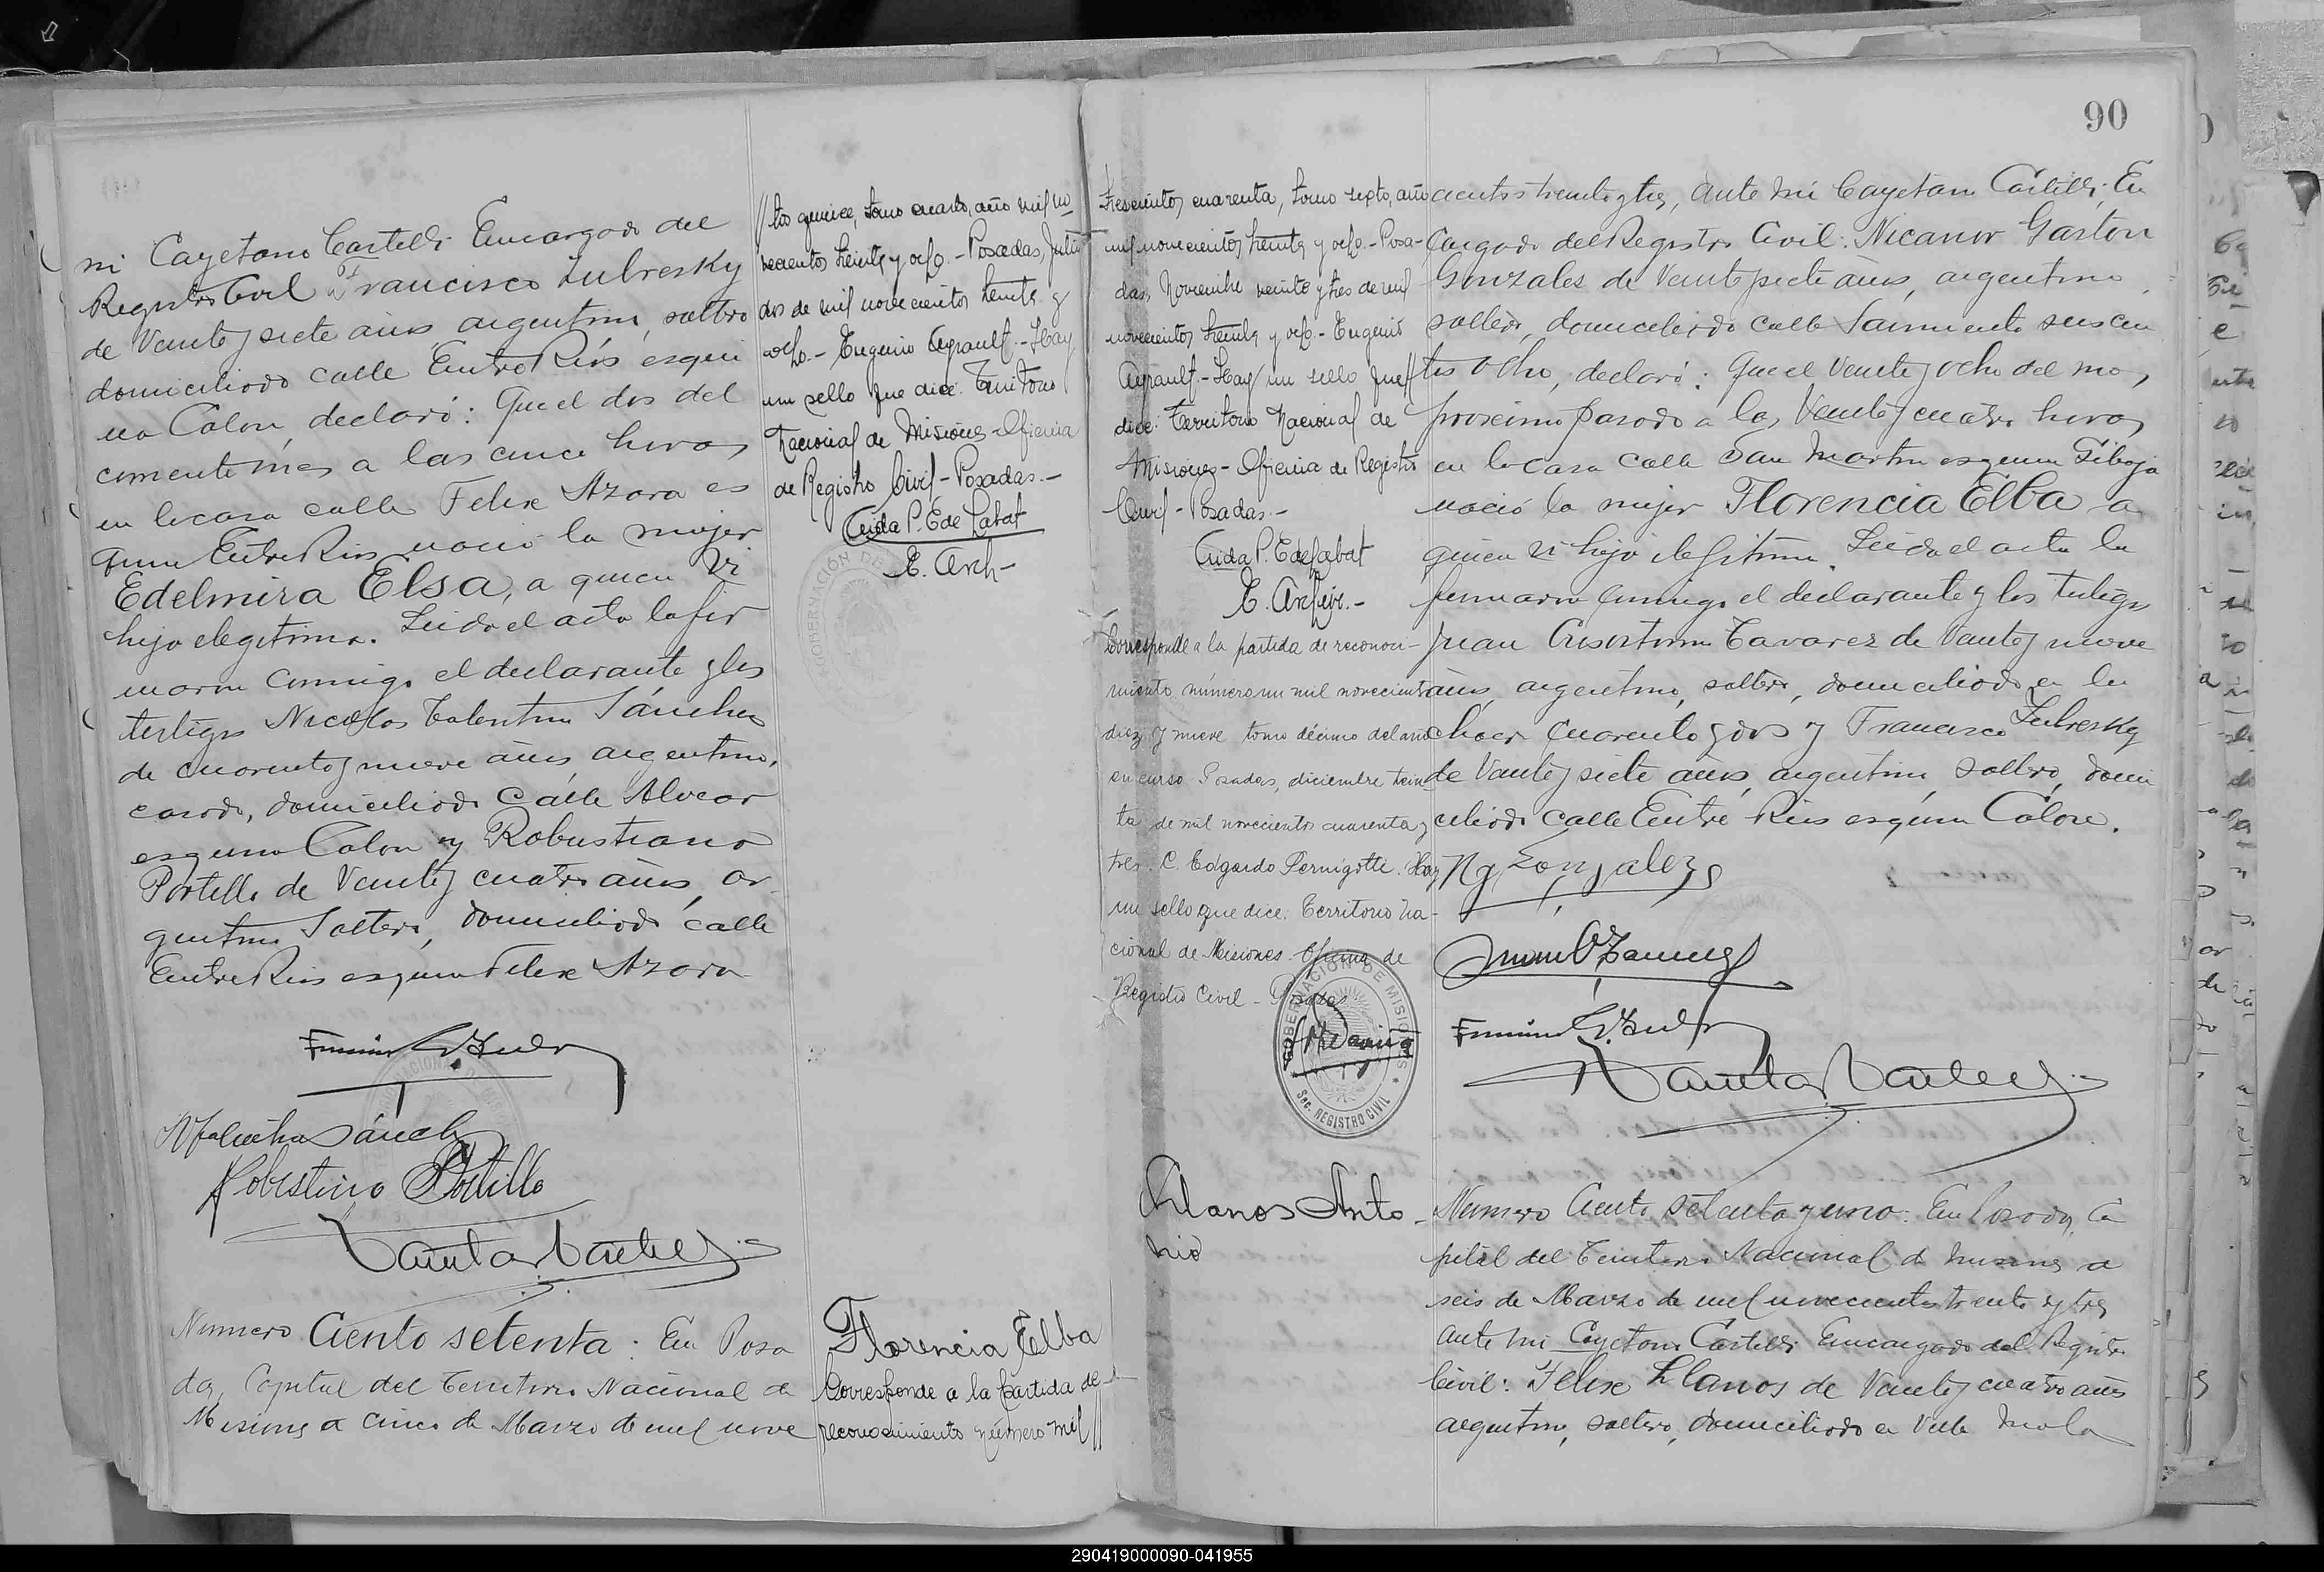 mi Cayetano Castelli Encargado del
Registro Civil Francisco Zubresky
de Veinte y siete años, argentino, soltero
domiciliado calle Entre Rios esqui
na Colon, declaró: Que el dos del
corriente mes a las once horas
en la casa calle Felix Azara es
quina Entre Rios nació la mujer
Edelmira Elsa, a quien vi
hija ilegitima. Leida el acta la fir
maron conmigo el declarante y los
testigos Nicolas Tolentino Sánchez
de cuarenta y nueve años, argentino,
casado, domiciliado Calle Alvear
esquina Colon y Robustiano
Portillo de Veinte y cuatro años, ar
gentino Soltero, domiciliado calle
Entre Rios esquina Felix Azara
Sánchez
Robustiano Portillo
Numero Ciento setenta: En Posa
das, Capital del Territorio Nacional de
Misiones a cinco de Marzo de mil nove
//tos quince, tomo cuarto, año mil no-
vecientos treinta y ocho.- Posadas, Julio
dos de mil novecientos treinta y
ocho.- Eugenio - Hay
un sello que dice: Territorio
Nacional de Misiones - Oficina
de Registro Civil - Posadas.-
Aida P. E. de Labat
E. Arch-
GOBERNACIÓN DE
Florencia Elba
Corresponde a la partida de
reconocimiento número mil //
90
trescientos cuarenta, tomo sexto, año
mil novecientos treinta y ocho.- Posa-
das, Noviembre veinte y tres de mil
novecientos treinta y ocho.- Eugenio
- Hay un sello que //
dice: Territorio Nacional de
Misiones - Oficina de Registro
Civil - Posadas.-
Aida P. E. de Labat
E. Archiv.-
Corresponde a la partida de reconoci-
miento, número un mil novecientos
diez y nueve tomo décimo del año
en curso Posadas, diciembre trein
ta de mil novecientos cuarenta y
tres. C. Edgardo Pernigotti. Hay
un sello que dice: Territorio Na-
cional de Misiones. Oficina de
Registro Civil - Posadas
GOBERNACIÓN DE MISIONES
Sec. REGISTRO CIVIL
cientos treinta y tres, ante mi Cayetano Castelli, En
cargado del Registro Civil: Nicanor Gaston
Gonzales de Veinte y siete años, argentino,
soltero, domiciliado calle Sarmiento seiscien
tos Ocho, declaró: Que el Veinte y ocho del mes
proximo pasado a las Veinte y cuatro horas
en la casa calle San Martin esquina Libaja
nació la mujer Florencia Elba a
quien vi hija ilegitima. Leida el acta la
firmaron conmigo el declarante y los testigos
Juan Crisostomo Tavarez de Veinte y nueve
años, argentino, soltero, domiciliado en la
chacra Cuarenta y dos y Francisco Zubresky
de Veinte y siete años, argentino, Soltero, domi
ciliado calle Entre Rios esquina Colon.
N G Gonzalez
Llanos Anto-
nio
Numero Ciento setenta y uno: En Posadas, Ca
pital del Territorio Nacional de Misiones a
seis de Marzo de mil novecientos treinta y tres
ante mi Cayetano Castelli Encargado del Registro
Civil: Felix Llanos de Veinte y cuatro años
argentino, soltero, domiciliado en Villa Mola
290419000090-041955